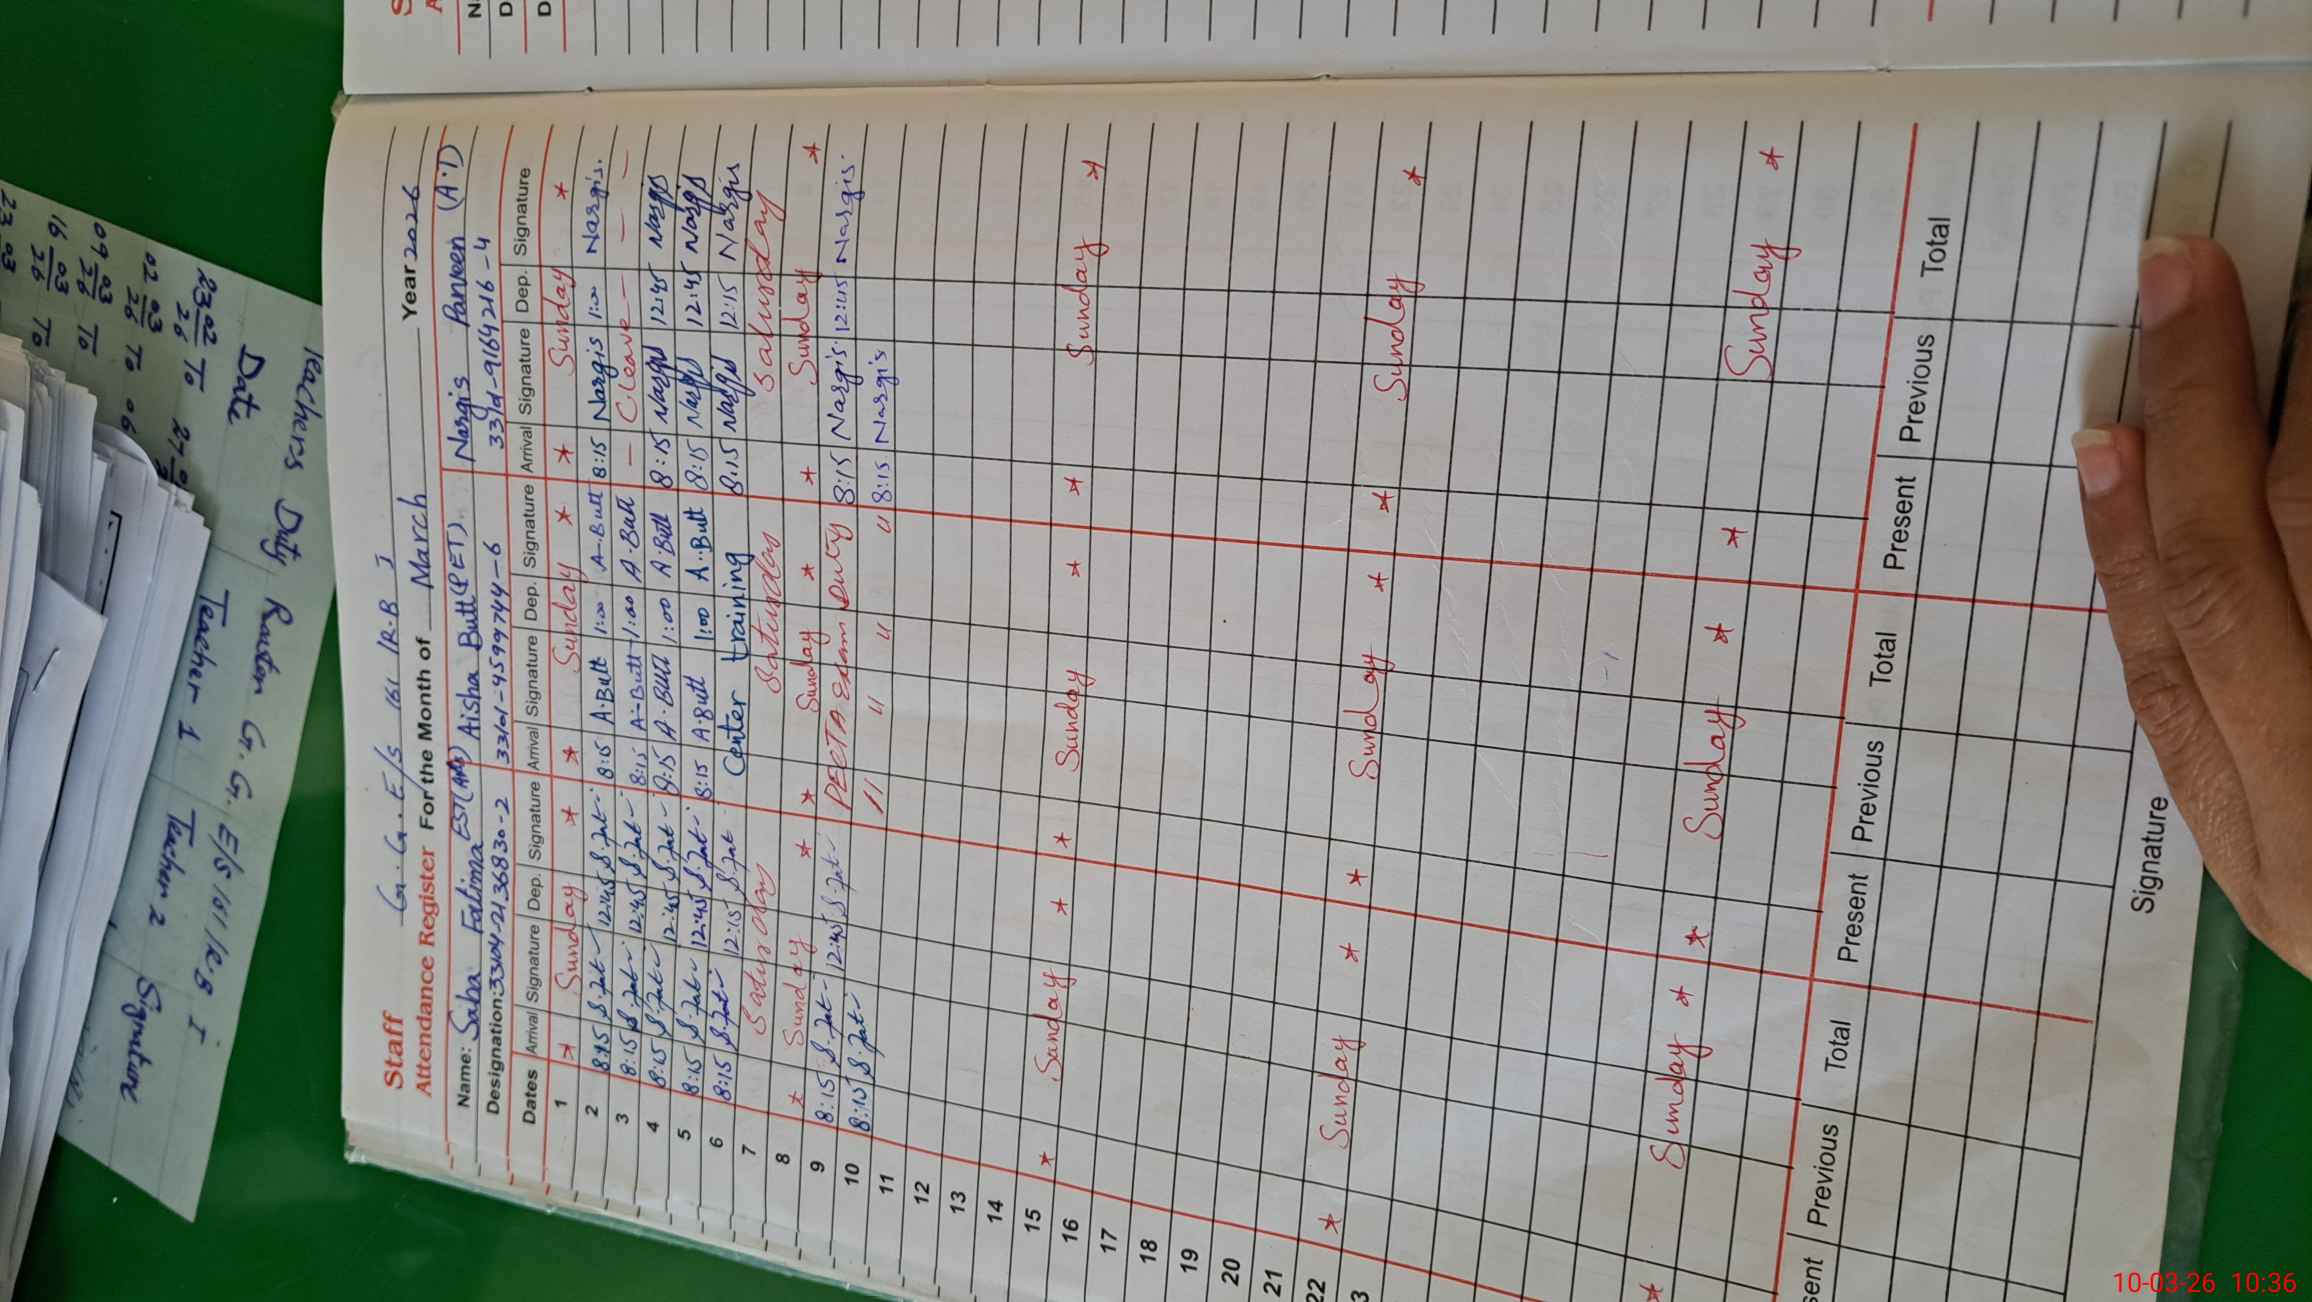 Staff G.G.E/S 161 /R.B I
Attendance Register For the Month of March Year 2026
Name: Saba Fatima EST Aisha Butt (PET) Nargis Parveen (A.I)
Designation: 33104-2136830-2 33101-4599744-6 33101-9164216-4
Dates Arrival Signature Dep. Signature Arrival Signature Dep. Signature Arrival Signature Dep. Signature
1 * Sunday * * Sunday * * Sunday *
2 8:15 S.fat 12:45 S.fat 8:15 A.Butt 1:00 A.Butt 8:15 Nargis 1:00 Nargis.
3 8:15 S.fat 12:45 S.fat 8:15 A.Butt 1:00 A.Butt — C.leave — — —
4 8:15 S.fat 12:45 S.fat 8:15 A.Butt 1:00 A.Butt 8:15 Nargis 12:45 Nargis
5 8:15 S.fat 12:45 S.fat 8:15 A.Butt 1:00 A.Butt 8:15 Nargis 12:45 Nargis
6 8:15 S.fat 12:15 S.fat Center training 8:15 Nargis 12:15 Nargis
7 Saturday Saturday Saturday
8 * Sunday * * Sunday * * Sunday *
9 8:15 S.fat 12:45 S.fat PECTA Exam Duty 8:15 Nargis. 12:45 Nargis.
10 8:15 S.fat 11 " " " 8:15 Nargis
11
12
13
14
15 * Sunday * * Sunday * * Sunday *
16
17
18
19
20
21
22 * Sunday * * Sunday * * Sunday *
3
* Sunday * * Sunday * * Sunday *
sent Previous Total Present Previous Total Present Previous Total
Signature
Teachers Duty Roaster G.G.E/S 161/RB I
Date Teacher 1 Teacher 2 Signature
23 02 26 To 27
02 03 26 To 06
09 03 26 To
16 03 26 To
23 03
S
A
N
D
D
10-03-26 10:36